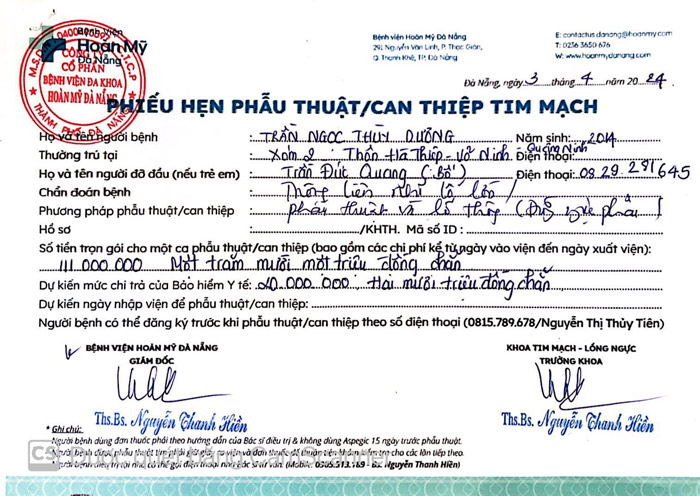 Bệnh viện
Hoàn Mỹ
Đà Nẵng
CÔNG TY
CỔ PHẦN
BỆNH VIỆN ĐA KHOA
HOÀN MỸ ĐÀ NẴNG
THÀNH PHỐ ĐÀ NẴNG
Bệnh viện Hoàn Mỹ Đà Nẵng
291 Nguyễn Văn Linh, P. Thạc Gián,
Q. Thanh Khê, TP. Đà Nẵng
E: contactus.danang@hoanmy.com
T: 0236 3650 676
W: www.hoanmydanang.com
Đà Nẵng, ngày 3 tháng 4 năm 2024
PHIẾU HẸN PHẪU THUẬT/CAN THIỆP TIM MẠCH
Họ và tên người bệnh: TRẦN NGỌC THÙY DƯƠNG Năm sinh: 2014
Thường trú tại: Xóm 2 Thôn Hà Thiệp - Võ Ninh - Quảng Ninh Điện thoại:
Họ và tên người đỡ đầu (nếu trẻ em): Trần Đức Quang (Bố) Điện thoại: 08.29.281645
Chẩn đoán bệnh: Thông liên nhĩ lỗ lớn /
Phương pháp phẫu thuật/can thiệp: phẫu thuật vá lỗ thông
Hồ sơ: /KHTH. Mã số ID:
Số tiền trọn gói cho một ca phẫu thuật/can thiệp (bao gồm các chi phí kể từ ngày vào viện đến ngày xuất viện):
111.000.000 Một trăm mười một triệu đồng chẵn
Dự kiến mức chi trả của Bảo hiểm Y tế: 20.000.000. Hai mươi triệu đồng chẵn
Dự kiến ngày nhập viện để phẫu thuật/can thiệp:
Người bệnh có thể đăng ký trước khi phẫu thuật/can thiệp theo số điện thoại (0815.789.678/Nguyễn Thị Thủy Tiên)
BỆNH VIỆN HOÀN MỸ ĐÀ NẴNG
GIÁM ĐỐC
Ths.Bs. Nguyễn Thanh Hiền
KHOA TIM MẠCH - LỒNG NGỰC
TRƯỞNG KHOA
Ths.Bs. Nguyễn Thanh Hiền
* Ghi chú:
- Người bệnh dùng đơn thuốc phải theo hướng dẫn của Bác sĩ điều trị & không dùng Aspegic 15 ngày trước phẫu thuật.
CS Được quét bằng CamScanner